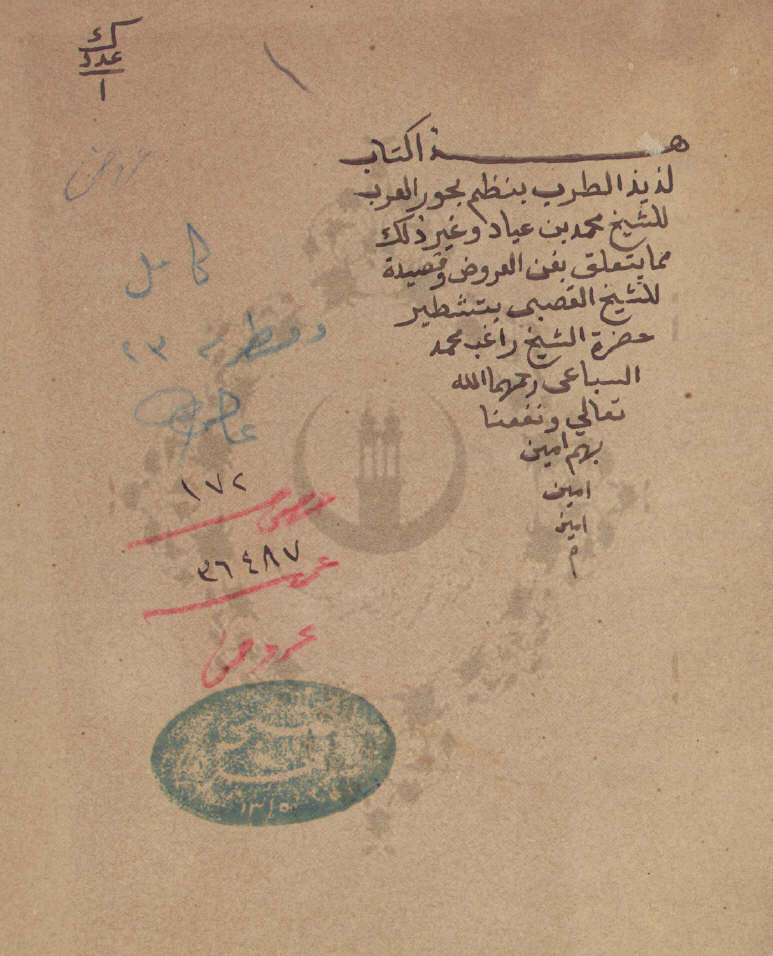 ك
عدد
١
عروض
هـذا الكتاب
لذيذ الطرب بنظم بحور العرب
للشيخ محمد بن عياد وغير ذلك
مما يتعلق بفن العروض وقصيدة
للشيخ القصبى بتشطير
حضرة الشيخ راغب محمد
السباعى رحمهما الله
تعالي ونفعنا
بهم امين
امين
امين
م
كامل
ومسطرته ٢٣
١٧٢
خصوصى
٣٦٤٨٧
عمومى
عروض